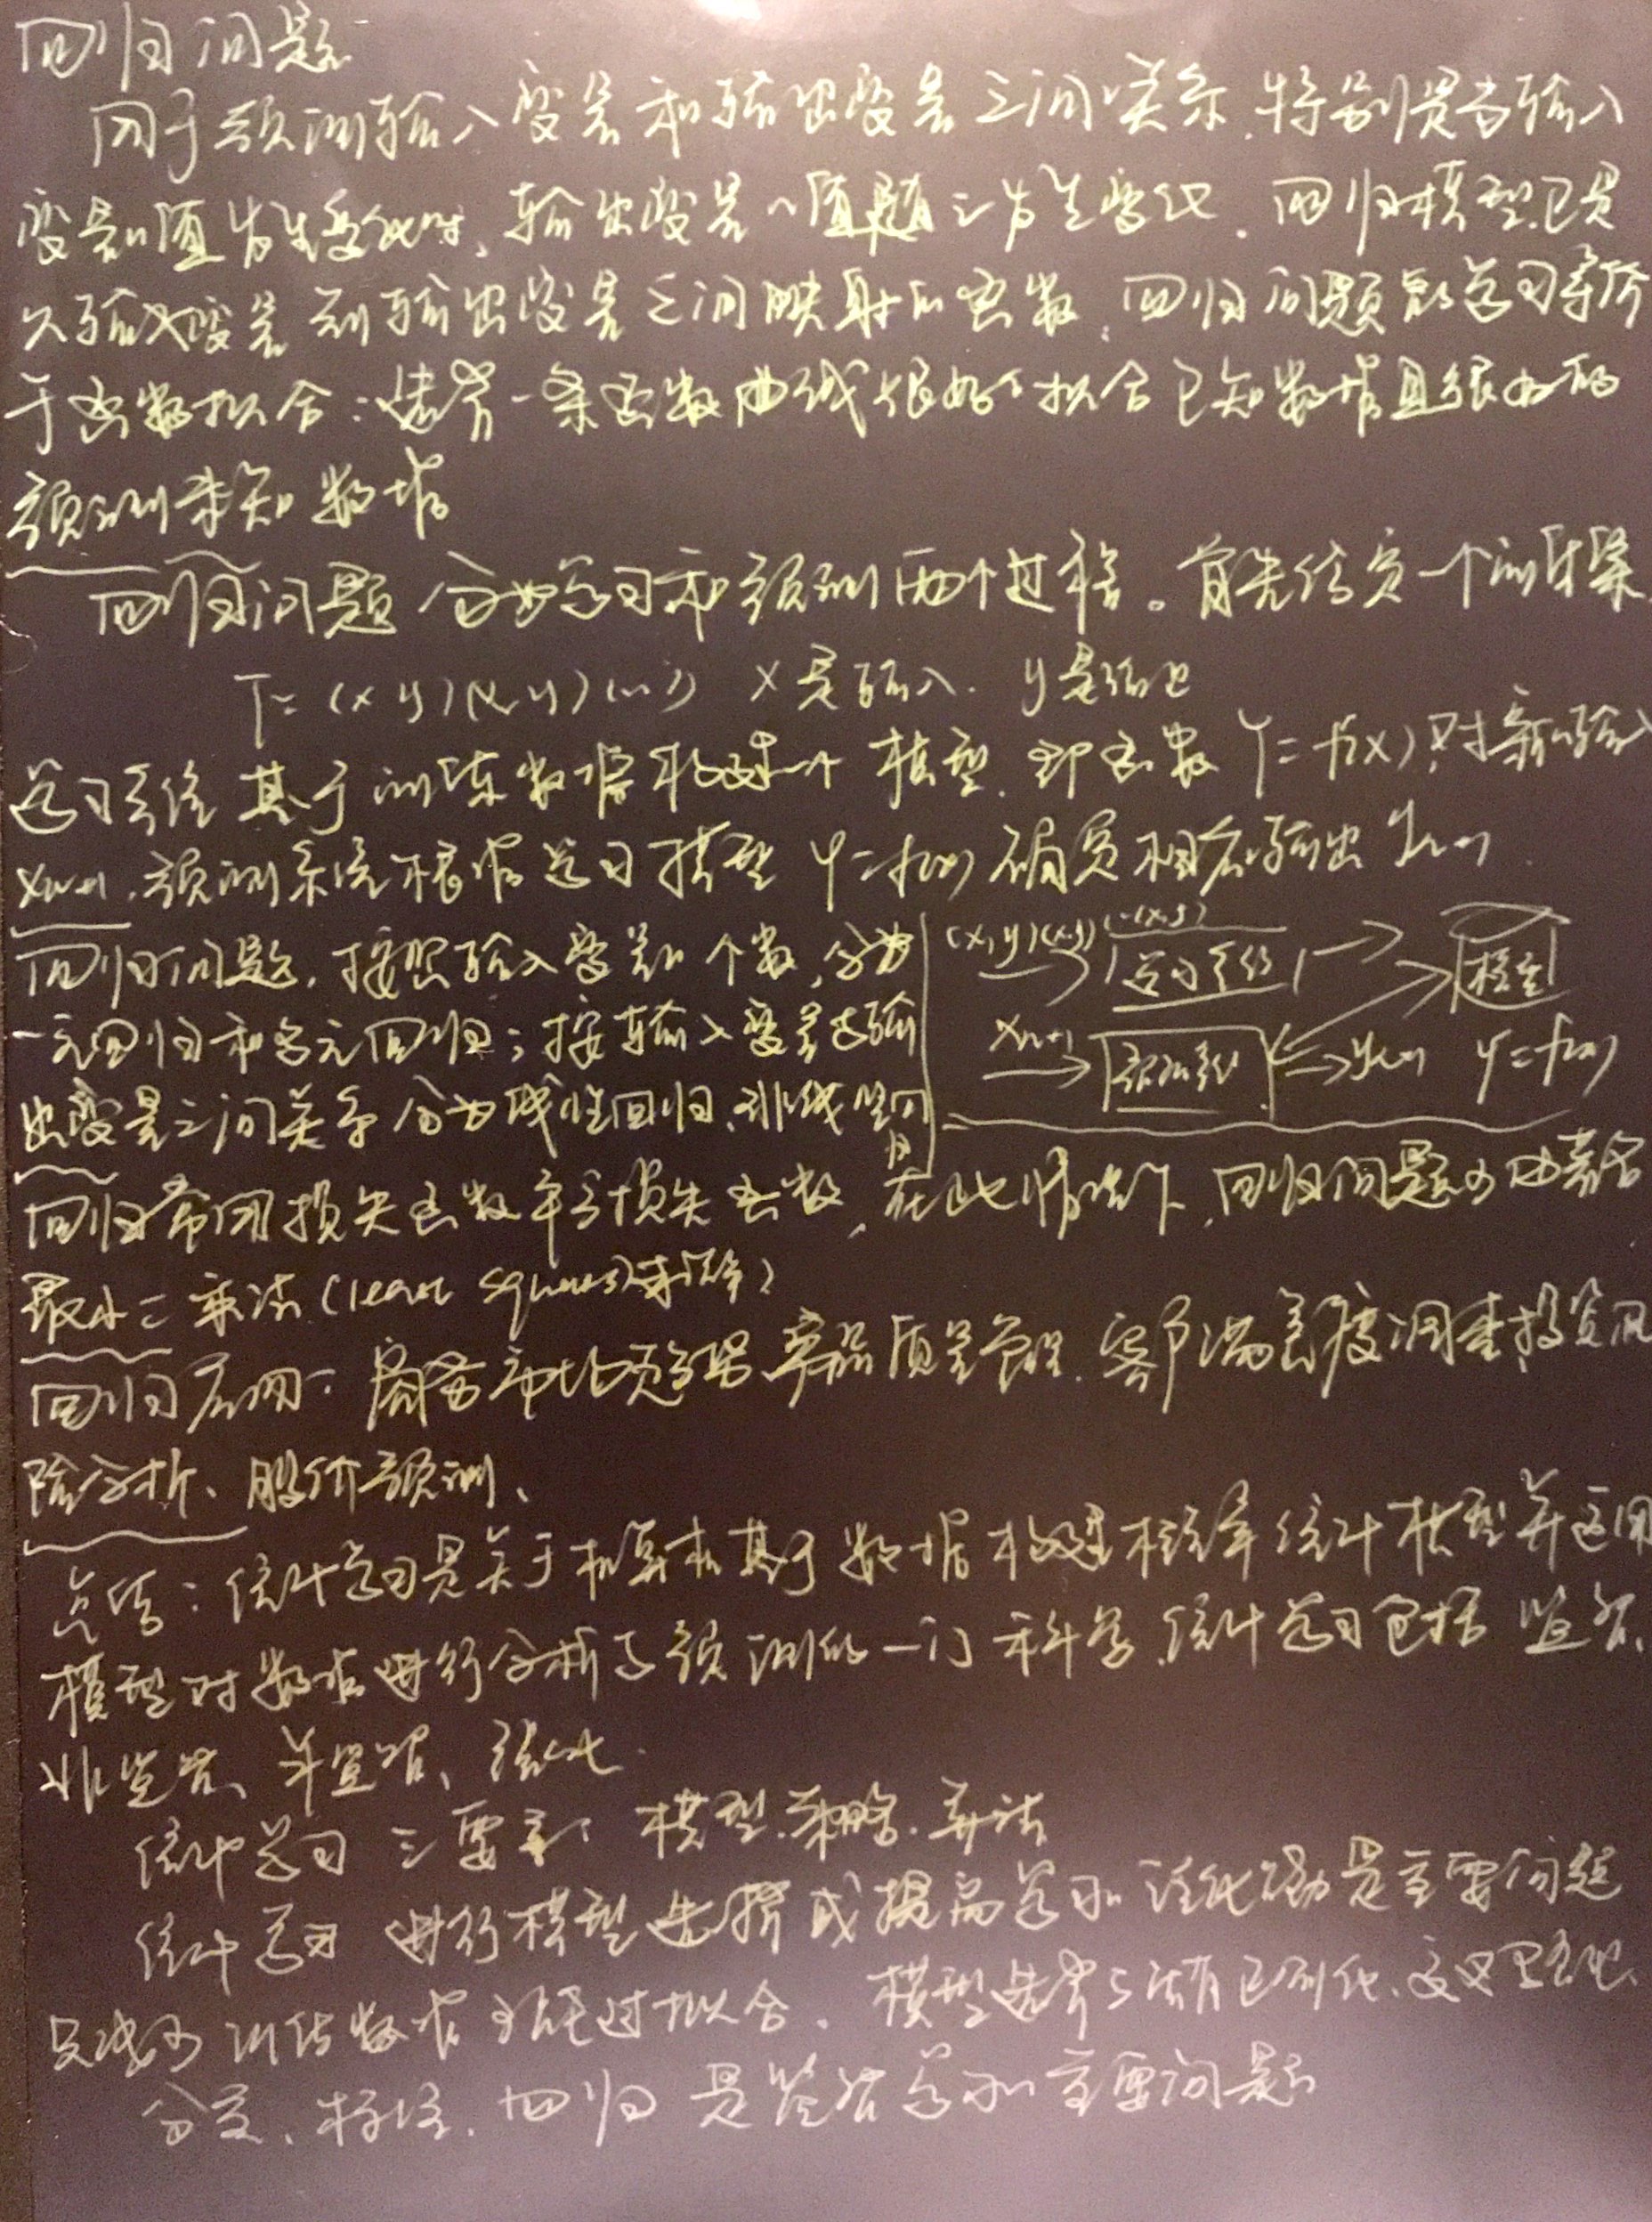 回归问题
用于预测输入变量和输出变量之间关系,特别是当输入
变量的值发生变化时,输出变量的值随之发生变化.回归模型正是
从输入变量到输出变量之间映射的函数,回归问题的学习等价
于函数拟合:选择一条函数曲线很好的拟合已知数据且很好的
预测未知数据
回归问题分为学习和预测两个过程。首先给定一个训练集
T=(x y)(x,y)(...) x是输入. y是输出
学习系统基于训练数据构建一个模型.即函数 Y=f(x),对新的输入
xn+1,预测系统根据学习模型 Y=f(x) 确定相应输出 yn+1
回归问题,按照输入变量的个数,分为
一元回归和多元回归;按输入变量与输
出变量之间关系分为线性回归、非线性回
归
(x,y)(x,y)...(x,y)
学习系统
模型
xn+1
预测系统
yn+1 Y=f(x)
回归常用损失函数平方损失函数,在此情况下,回归问题可由著名
最小二乘法(least squares)求解)
回归应用: 商务市场趋势.产品质量管理.客户满意度调查.投资风
险分析、股价预测、
总结:统计学习是关于计算机基于数据构建概率统计模型并运用
模型对数据进行分析与预测的一门科学.统计学习包括 监督、
非监督、半监督、强化.
统计学习三要素: 模型.策略.算法
统计学习 进行模型选择或提高学习的泛化能力是主要问题
只减少训练数据 过拟合. 模型选择方法有正则化、交叉验证
分类、标注、回归 是监督学习的主要问题